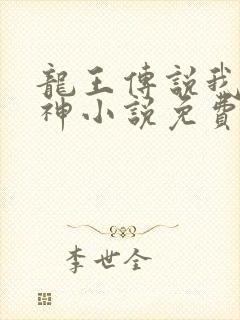 龍王傳說我
神小說免費
李世全